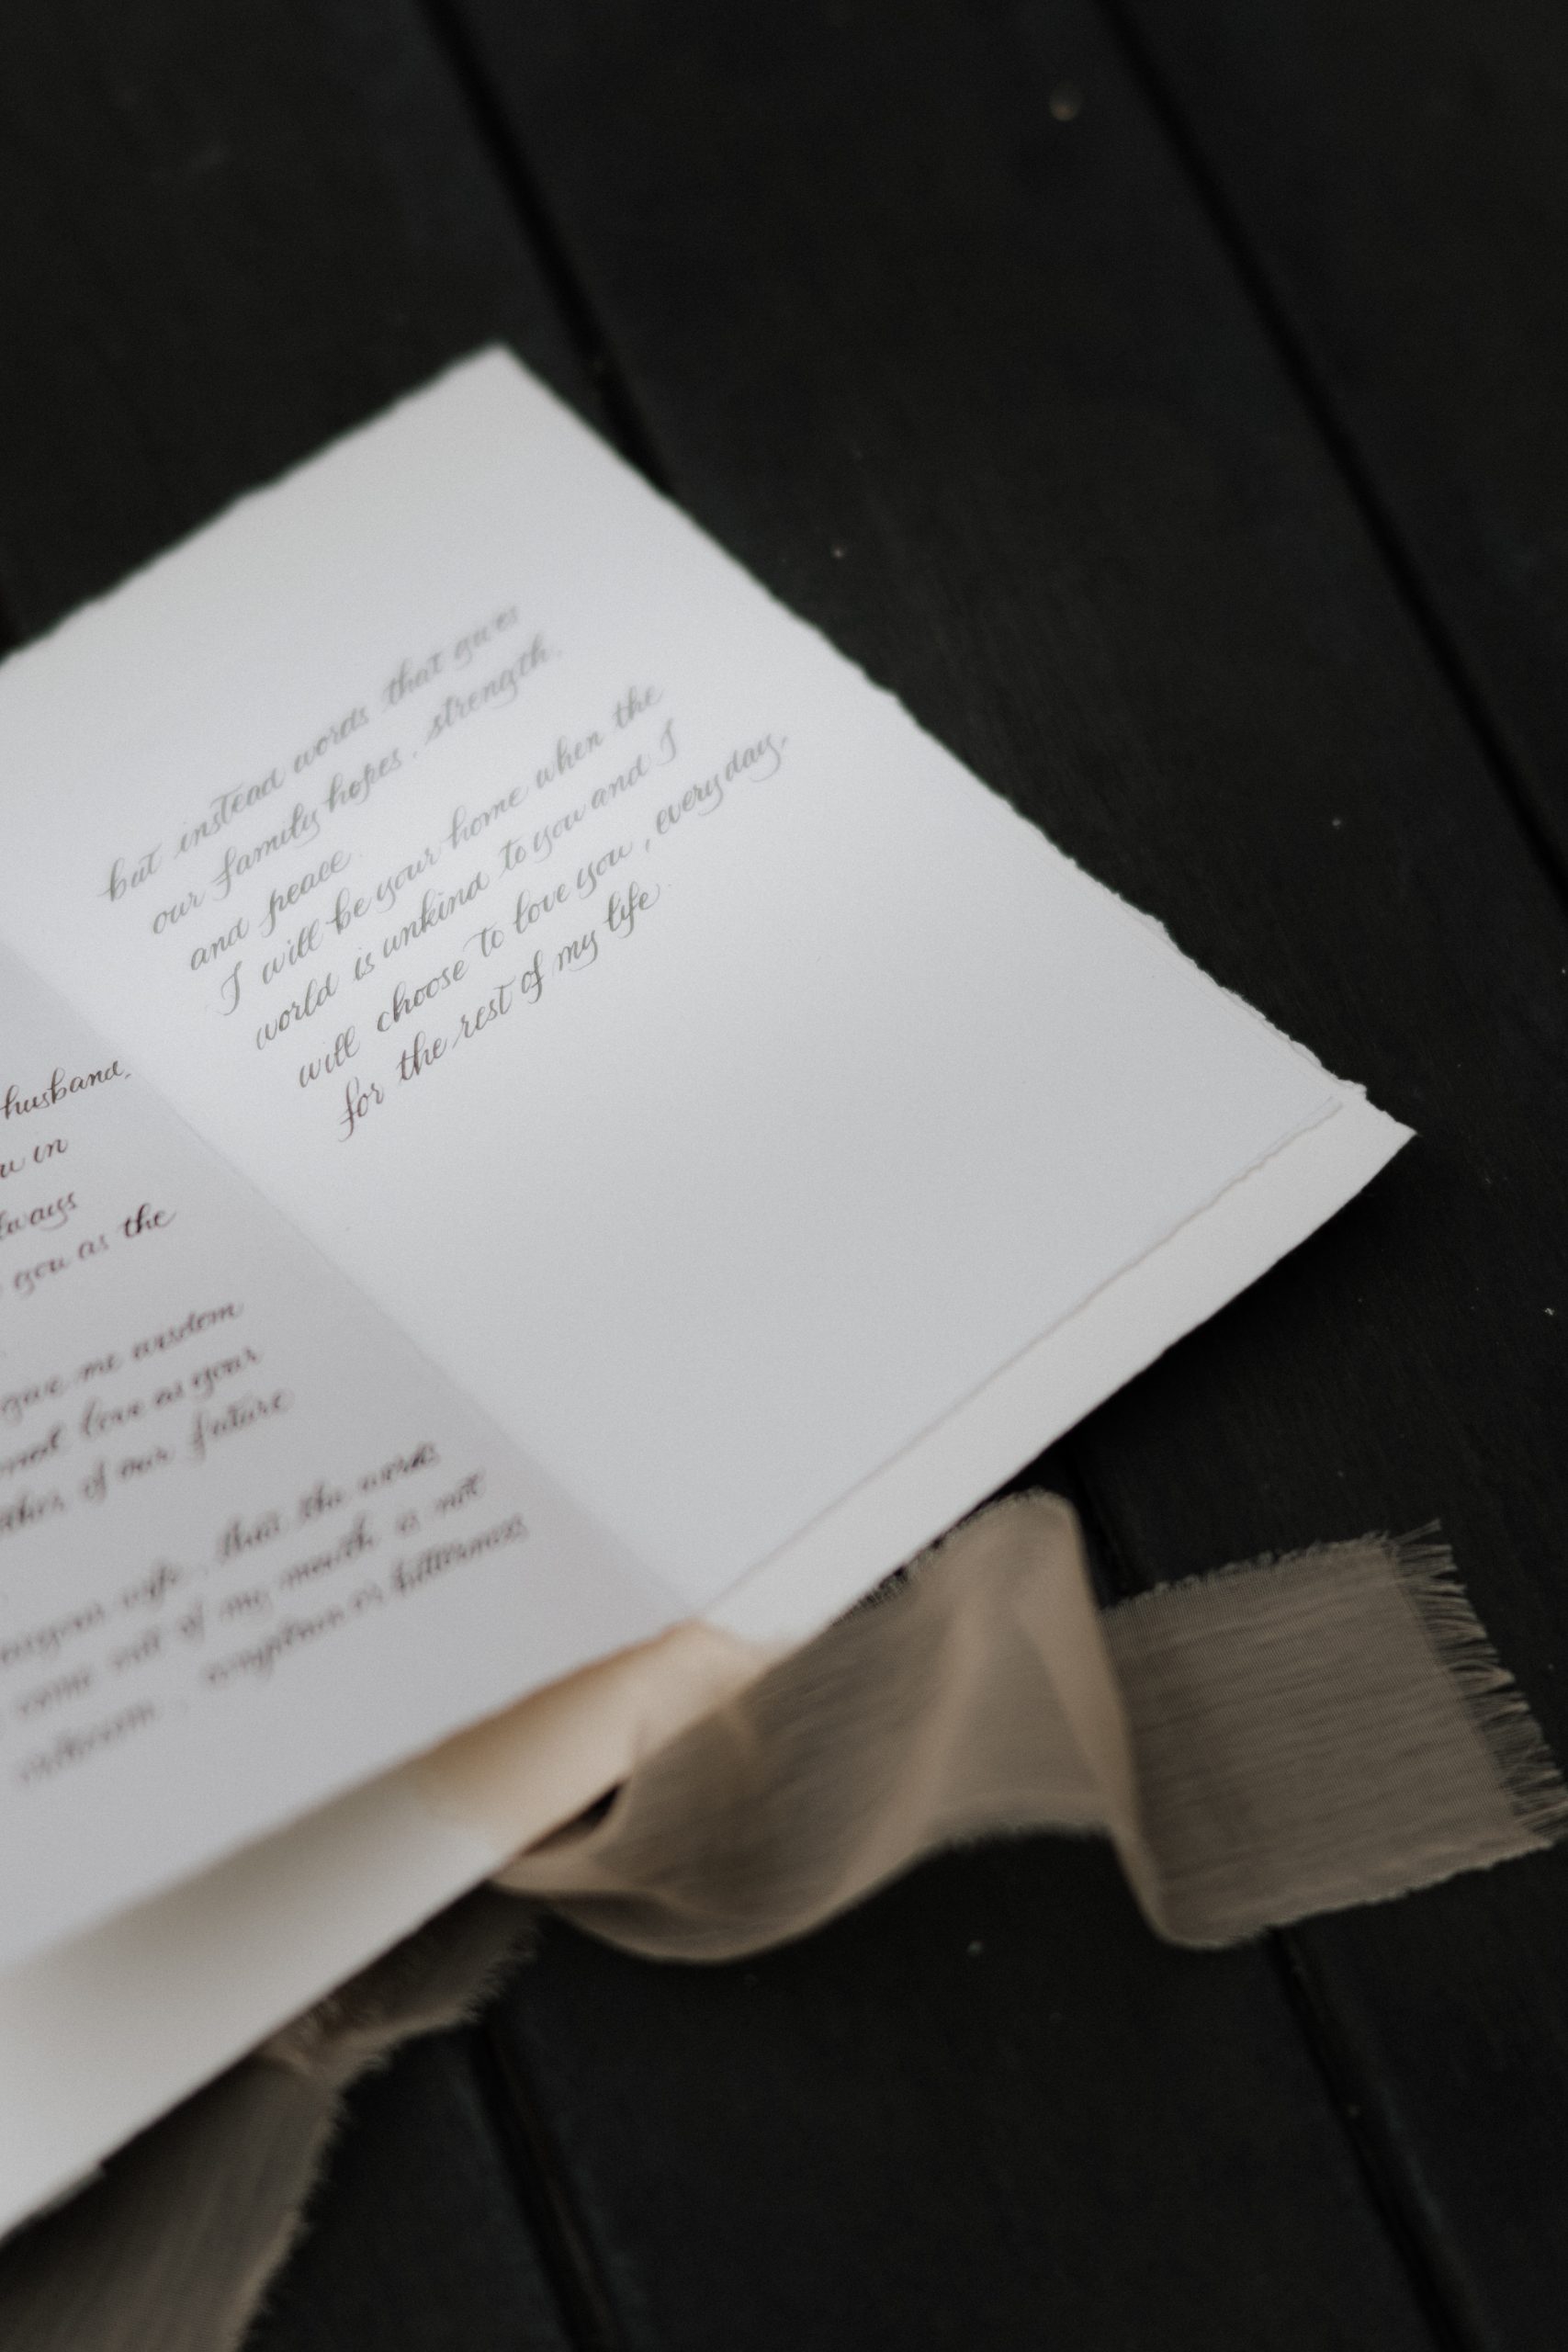 husband,
in
you as the
give me wisdom
love as your
of our future
wife, that the words
come out of my mouth is not
or bitterness
but instead words that gives
our family hopes, strength,
and peace.
I will be your home when the
world is unkind to you and I
will choose to love you, everyday,
for the rest of my life.